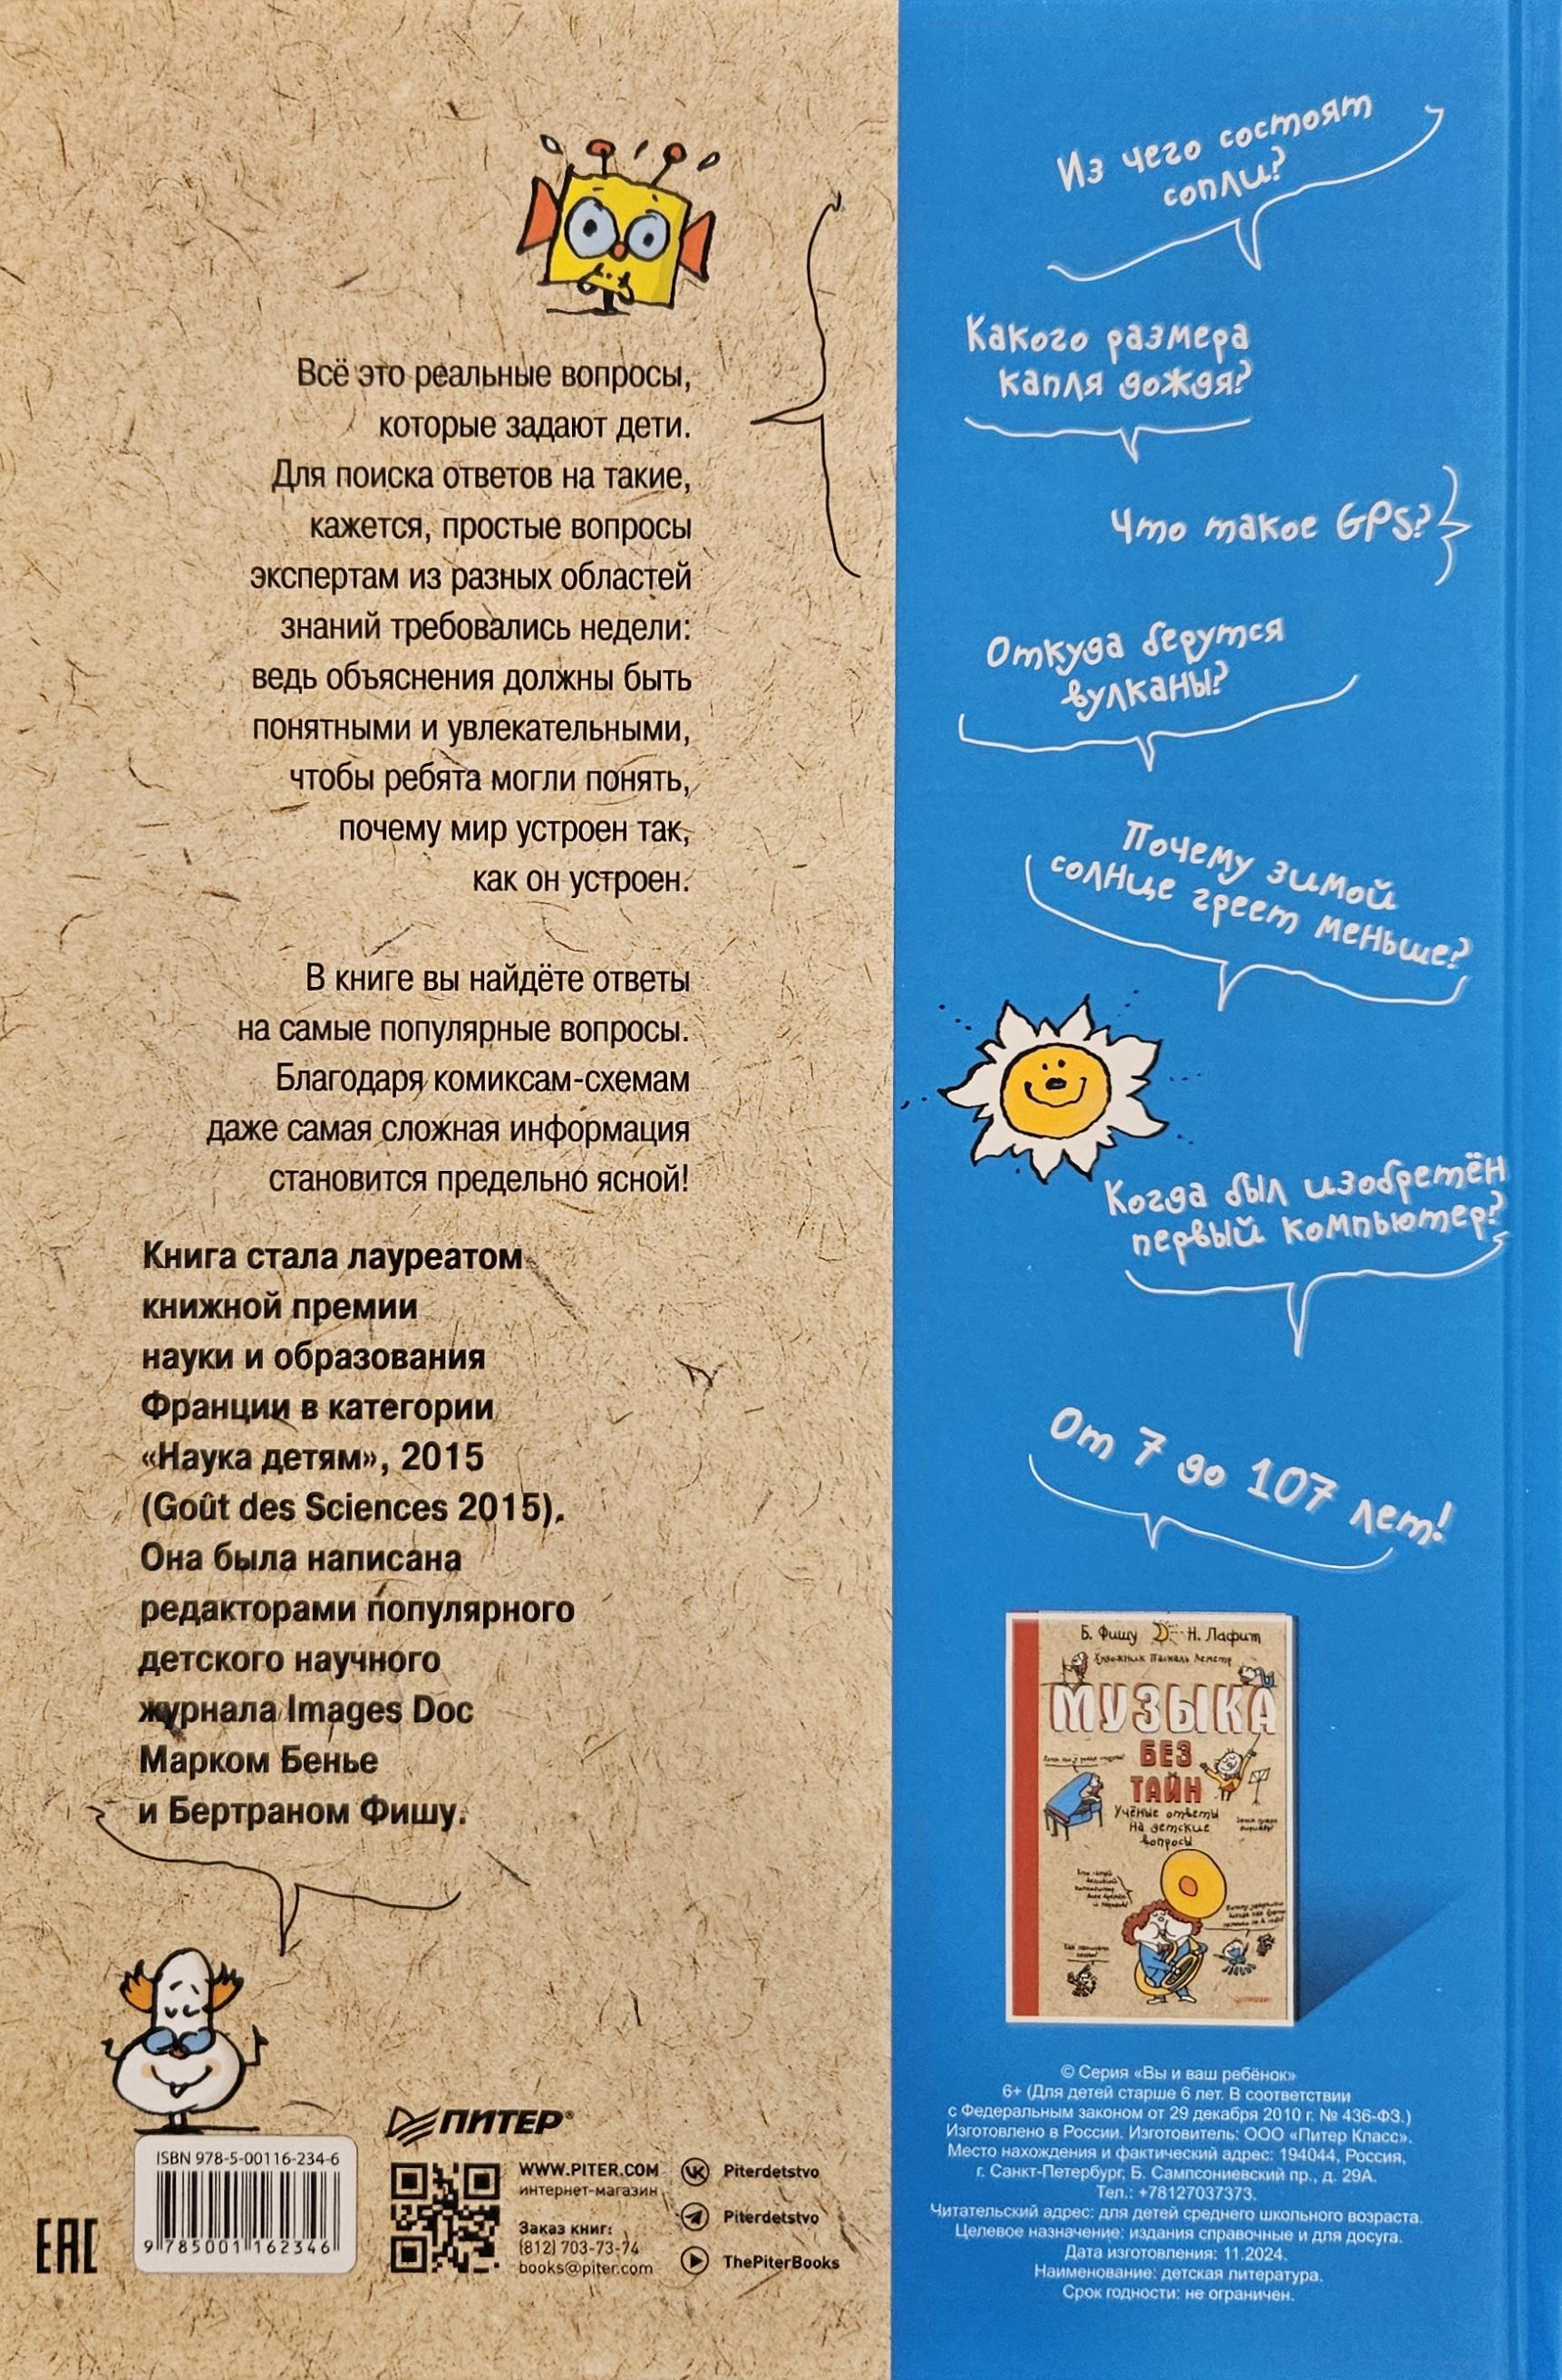 Всё это реальные вопросы,
которые задают дети.
Для поиска ответов на такие,
кажется, простые вопросы
экспертам из разных областей
знаний требовались недели:
ведь объяснения должны быть
понятными и увлекательными,
чтобы ребята могли понять,
почему мир устроен так,
как он устроен.
В книге вы найдёте ответы
на самые популярные вопросы.
Благодаря комиксам-схемам
даже самая сложная информация
становится предельно ясной!
Книга стала лауреатом
книжной премии
науки и образования
Франции в категории
«Наука детям», 2015
(Goût des Sciences 2015).
Она была написана
редакторами популярного
детского научного
журнала Images Doc
Марком Бенье
и Бертраном Фишу.
EAC
ISBN 978-5-00116-234-6
9 785001 162346
ПИТЕР®
WWW.PITER.COM
интернет-магазин
Заказ книг:
(812) 703-73-74
books@piter.com
Piterdetstvo
Piterdetstvo
ThePiterBooks
Из чего состоят
сопли?
Какого размера
капля дождя?
Что такое GPS?
Откуда берутся
вулканы?
Почему зимой
солнце греет меньше?
Когда был изобретён
первый компьютер?
От 7 до 107 лет!
Б. Фишу Н. Лафит
Художник Паскаль Леметр
МУЗЫКА
БЕЗ
ТАЙН
Учёные ответы
на детские
вопросы
© Серия «Вы и ваш ребёнок»
6+ (Для детей старше 6 лет. В соответствии
с Федеральным законом от 29 декабря 2010 г. № 436-ФЗ.)
Изготовлено в России. Изготовитель: ООО «Питер Класс».
Место нахождения и фактический адрес: 194044, Россия,
г. Санкт-Петербург, Б. Сампсониевский пр., д. 29А.
Тел.: +78127037373.
Читательский адрес: для детей среднего школьного возраста.
Целевое назначение: издания справочные и для досуга.
Дата изготовления: 11.2024.
Наименование: детская литература.
Срок годности: не ограничен.